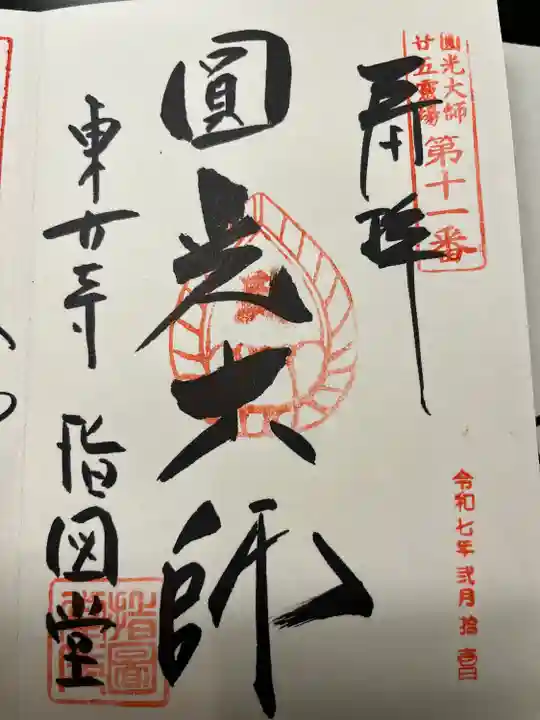 圓光大師
廿五霊場
第十一番
奉拝
圓光大師
東大寺 指図堂
指図堂
令和七年弐月拾壱日